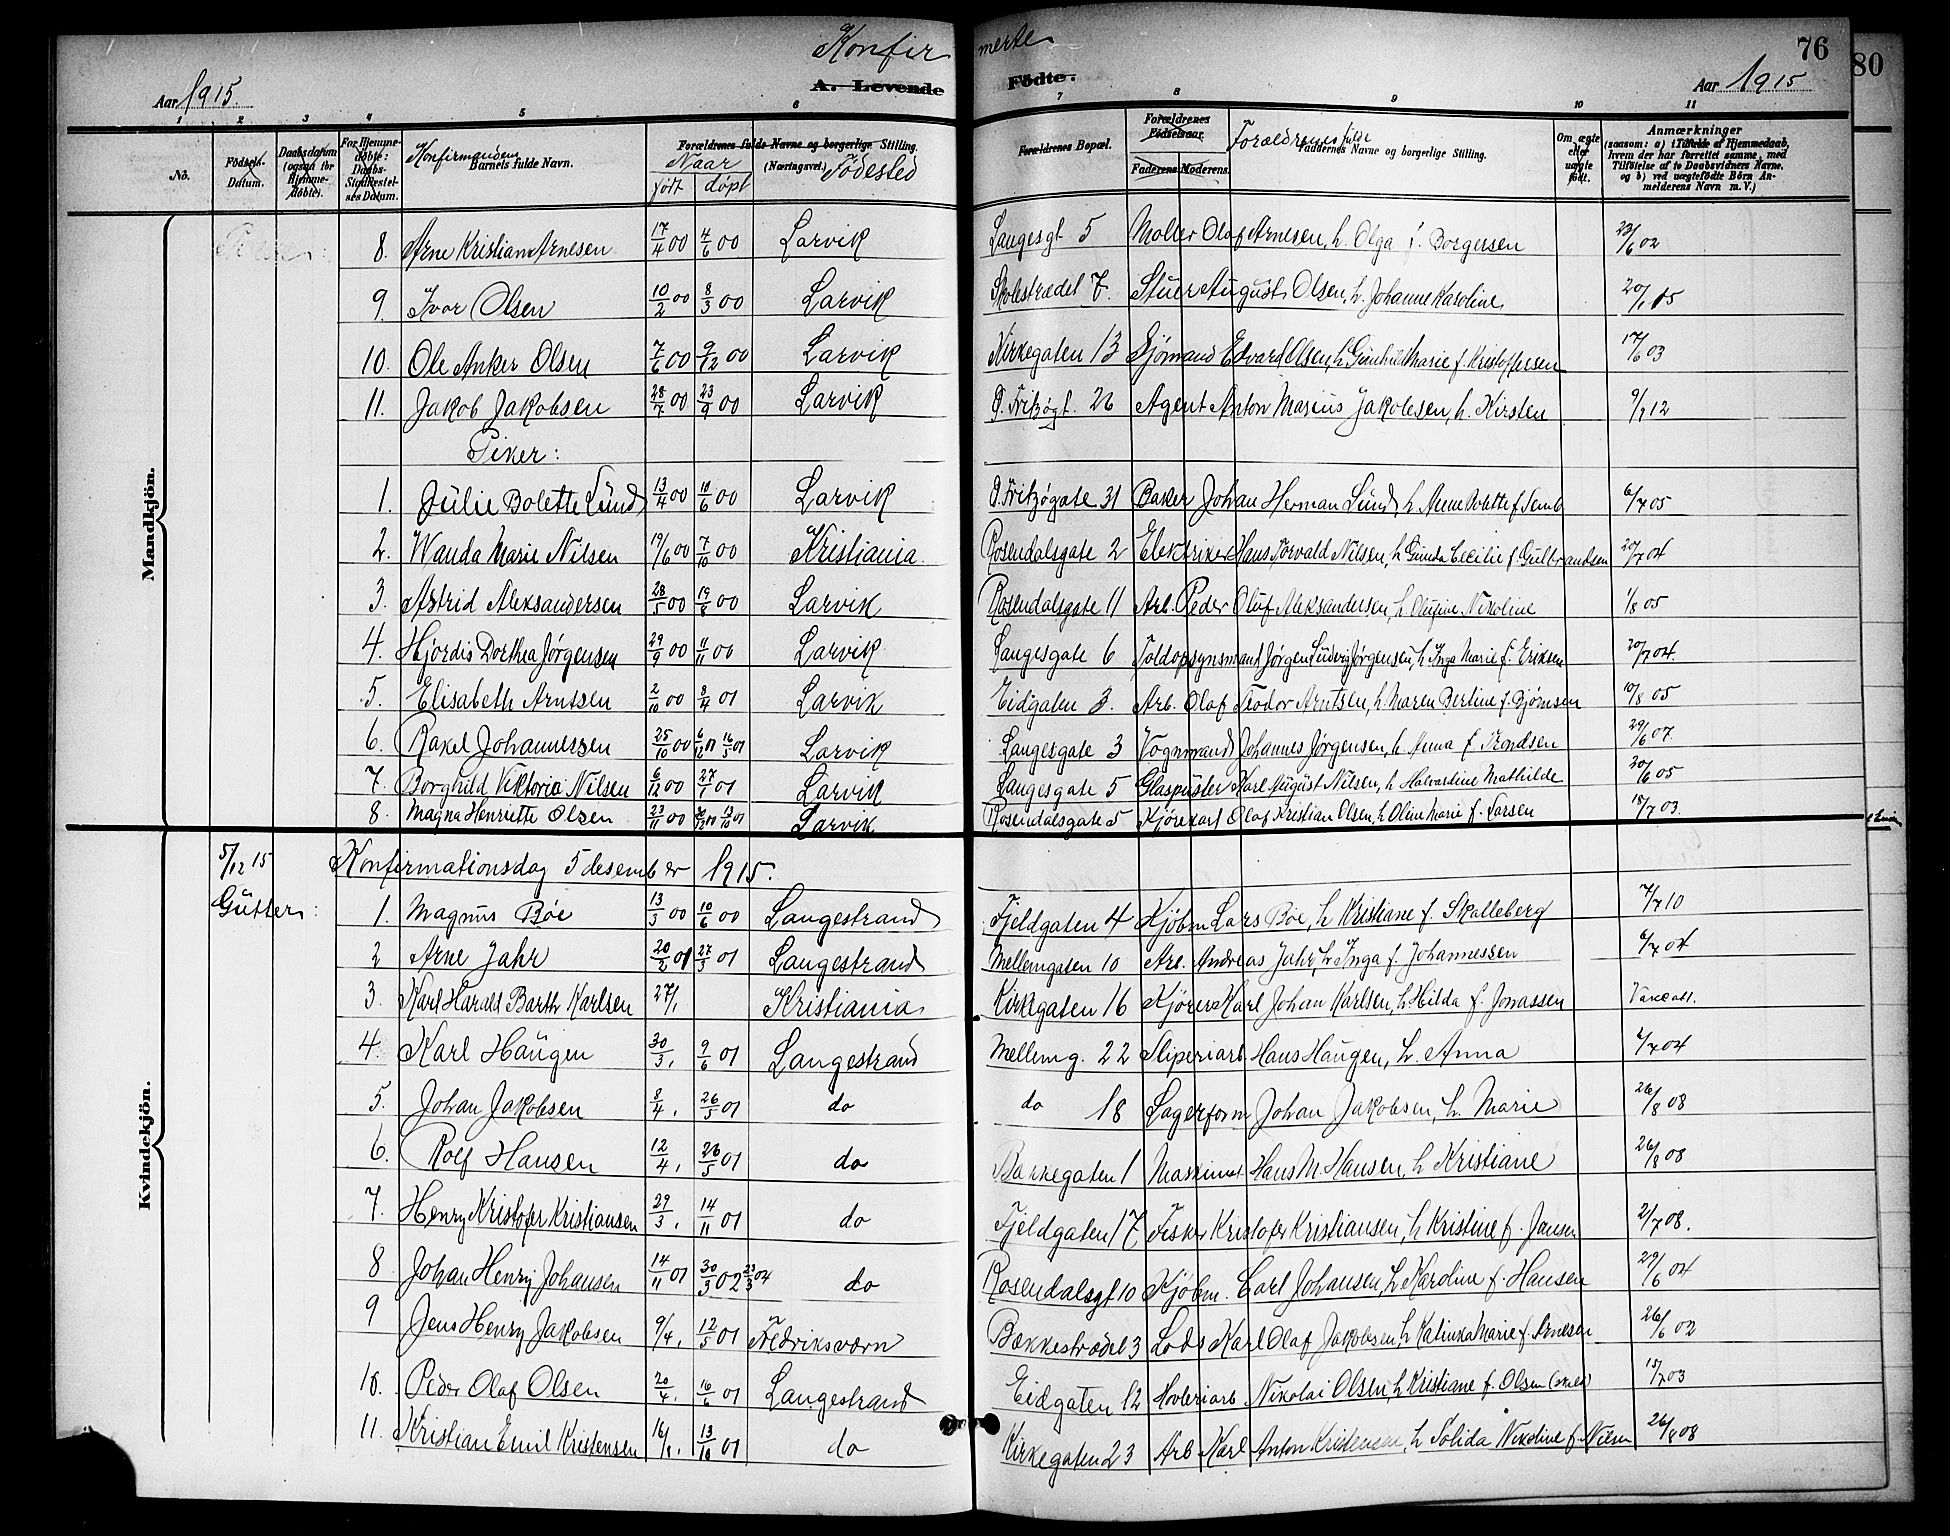 Konfirmerte
76
80
Aar 1915.
A. Levende Födte.
Aar 1915
1 2 3 4 5 6 7 8 9 10 11
No.
Födsels-Datum.
Daabsdatum (ogsaa for Hjemmedöbte).
For Hjemmedöbte: Daabs-Stadfæstelses Datum.
Konfirmandens
Barnets fulde Navn.
Forældrenes fulde Navne og borgerlige Stilling.
(Næringsvei.)
Naar
født døpt
Fødested
Forældrenes Bopæl.
Forældrenes Födselsaar.
Faderens Moderens.
Forældrenes fulde
Faddernes Navne og borgerlige Stilling.
Om ægte eller uægte födt.
Anmærkninger
(saasom: a) i Tilfælde af Hjemmedaab, hvem der har forrettet samme, med Tilföielse af to Daabsvidners Navne, og b) ved uægtefödte Börn Anmelderens Navn m. V.)
Mandkjön.
8. Arne Kristian Arnesen 17/4 00 4/6 00 Larvik Langesgt 5 Møller Olaf Arnesen, h. Olga f. Borgersen 23/6 02
9. Ivar Olsen 10/2 00 8/3 00 Larvik Skolestrædet 7. Stuer August Olsen, h. Johanne Karoline 20/1 15
10. Ole Anker Olsen 7/6 00 9/12 00 Larvik Kirkegaten 13 Sjømand Edvard Olsen, h. Gunhild Marie f. Kristoffersen 17/6 03
11. Jakob Jakobsen 28/7 00 23/9 00 Larvik Ø. Fritzøgt. 26 Agent Anton Marius Jakobsen, h. Kirsten 9/9 12
Piker:
1. Julie Bolette Lund 13/4 00 10/6 00 Larvik Ø. Fritzøgate 31 Baker Johan Herman Lund, h. Anne Bolette f. Semb 6/7 05
2. Wanda Marie Nilsen 19/6 00 7/10 00 Kristiania Rosendalsgate 2 Elektriker Hans Torvald Nilsen, h. Gunda Cecilie f. Gulbrandsen 20/7 04
3. Astrid Aleksandersen 28/5 00 19/8 00 Larvik Rosendalsgate 11 Arb. Peder Oluf Aleksandersen, h. Olufine Nikoline 1/8 05
4. Hjørdis Dorthea Jørgensen 29/9 00 11/11 00 Larvik Langesgate 6 Toldopsynsmand Jørgen Ludvig Jørgensen, h. Inga Marie f. Eriksen 20/7 04.
5. Elisabeth Arntsen 2/10 00 8/4 01 Larvik Eidgaten 3. Arb. Olaf Teodor Arntsen, h. Maren Bertine f. Bjørnsen 10/8 05
6. Rakel Johannessen 25/10 00 6/12 01 16/5 01 Larvik Langesgate 3 Vognmand Johannes Jørgensen, h. Anna f. Trondsen 29/6 07.
7. Borghild Viktoria Nilsen 6/12 00 27/1 01 Larvik Langesgate 5 Glaspuster Karl August Nilsen, h. Halvardine Mathilde 30/6 05
8. Magna Henriette Olsen 23/11 00 13/10 01 Larvik Rosendalsgate 5 Kjørekarl Olaf Kristian Olsen, h. Oline Marie f. Larsen 18/7 03.
Kvindekjön.
5/12 15 Konfirmationsdag 5 desember 1915.
Gutter:
1. Magnus Bøe 13/3 00 10/6 00 Langestrand Fjeldgaten 4 Kjøbm Lars Bøe, h. Kristiane f. Skalleberg 7/7 10
2 Arne Jahr 20/2 01 27/3 01 Langestrand Mellemgaten 10 Arb. Andreas Jahr, h. Inga f. Johannessen 6/7 04
3. Karl Harald Barth Karlsen 27/1 Kristiania Kirkegaten 16 Kjører Karl Johan Karlsen, h. Hilda f. Jonassen
4. Karl Haugen 30/3, 9/6 01 Langestrand Mellemg. 22 Sliperiarb Hans Haugen, h. Anna 6/7 04
5. Johan Jakobsen 8/4, 26/5 01 do do 18 Lagerform Johan Jakobsen, h. Marie 26/8 08
6. Rolf Hansen 12/4, 26/5 01 do Bakkegaten 1 Maskinist Hans M. Hansen, h Kristiane 26/8 08
7. Henry Kristofer Kristiansen 29/3, 14/11 01 do Fjeldgaten 17 Fisker Kristofer Kristiansen, h Kristine f. Jansen 2/7 08.
8 Johan Henry Johansen 14/11 01 30/3 02 23/3 04 do Rosendalsgt 10 Kjøbm. Carl Johansen, h Karoline f. Hansen 29/6 04
9 Jens Henry Jakobsen 9/4, 12/5 01 Fredriksværn Bækkestrædet 3 Lods Karl Olaf Jakobsen, h Katinka Marie f. Arnesen 26/6 02
10. Peder Olaf Olsen 20/4, 16/6 01 Langestrand Eidgaten 12 Høvleriarb Nikolai Olsen, h Kristiane f. Olsen 15/7 03
11. Kristian Emil Kristensen 16/8, 13/10 01 do Kirkegaten 23 Arb Karl Anton Kristensen, h Solida Nikoline f. Nilsen 26/8 08